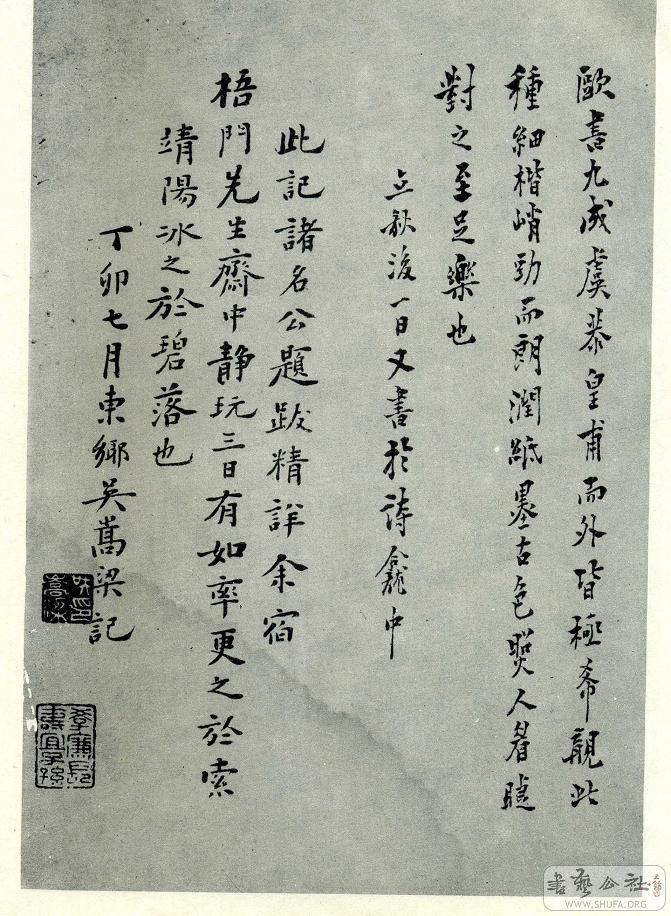 歐書九成虞恭皇甫而外皆極希覯此
種細楷峭勁而朗潤紙墨古色煛人眉睫
對之至足樂也
立秋後一日又書於詩龕中
此記諸名公題跋精詳余宿
梧門先生齋中静玩三日有如率更之於索
靖陽冰之於碧落也
丁卯七月東鄉吳嵩梁記
吳印
嵩梁
季廉長
壽宜子孫
書藝公社
WWW.SHUFA.ORG